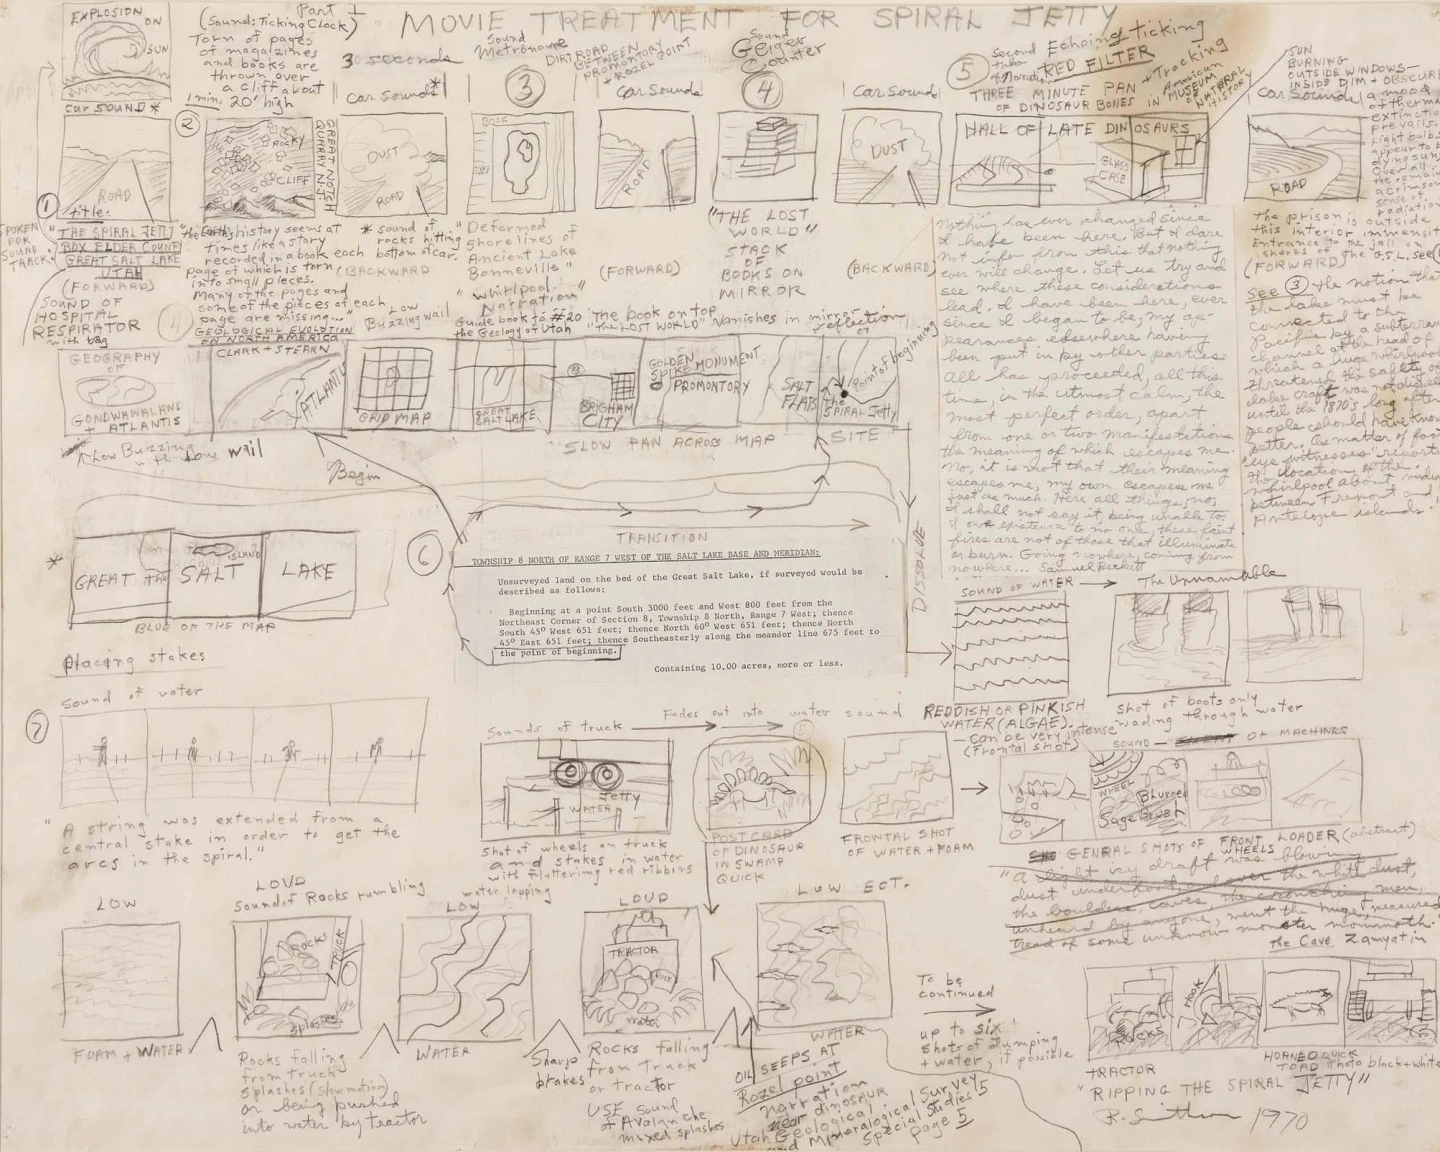 MOVIE TREATMENT FOR SPIRAL JETTY
Part 1
EXPLOSION
ON
SUN
(Sound: Ticking Clock)
Torn of pages
of magazines
and books are
thrown over
a cliff about
1 min. 20' high
30 seconds
Sound
Metronome
DIRT ROAD
BETWEEN
PROMONTORY
+ ROZEL POINT
Sound
Geiger
Counter
5
Second
take
Echoing ticking
RED FILTER
THREE MINUTE PAN + Tracking
OF DINOSAUR BONES IN American
MUSEUM
OF NATURAL
HISTORY
SUN
BURNING
OUTSIDE WINDOWS—
INSIDE DIM + OBSCURE
car sound *
2
Car Sounds *
3
Car Sounds
4
Car Sounds
Car Sounds
a mood
of thermal
extinction
prevails.
Light bulbs
appear to be
dying suns
Over all
the remains
a crimson
sense of
radiation
ROAD
ROCKY
CLIFF
GREAT NOTCH
QUARRY N.J.
DUST
ROAD
BOOK
ROAD
DUST
HALL OF LATE DINOSAURS
GLASS
CASE
ROAD
1
title:
"THE SPIRAL JETTY
BOX ELDER COUNTY
GREAT SALT LAKE
UTAH
(FORWARD)
SOUND OF
HOSPITAL
RESPIRATOR
with bag
SPOKEN
FOR
SOUND
TRACK
"The Earth's history seems at
times like a story
recorded in a book each
page of which is torn
into small pieces.
Many of the pages and
some of the pieces of each
page are missing..."
GEOLOGICAL EVOLUTION
OF NORTH AMERICA
CLARK + STEARN
* sound of
rocks hitting
bottom of car.
(BACKWARD
Low
Buzzing wail
"Deformed
shore lines of
Ancient Lake
Bonneville"
"whirlpool"
Narration
Guide book to #20
the Geology of Utah
(FORWARD)
"THE LOST
WORLD"
STACK
OF
BOOKS ON
MIRROR
The book on top
"the LOST WORLD" vanishes in mirror
reflection
(BACKWARD)
Nothing has ever changed since
I have been here. But I dare
not infer from this that nothing
ever will change. Let us try and
see where these considerations
lead. I have been here, ever
since I began to be, my ap-
pearances elsewhere having
been put in by other parties.
All has proceeded, all this
time, in the utmost calm, the
most perfect order, apart
from one or two manifestations
the meaning of which escapes me.
No, it is not that their meaning
escapes me, my own escapes me
just as much. Here all things, no,
I shall not say it, being unable to.
I owe existence to no one, these faint
fires are not of those that illuminate
or burn. Going nowhere, coming from
nowhere... Samuel Beckett
The Unnamable
the prison is outside
this interior immensity
Entrance to the jail on
shores of the G.S.L. see
(FORWARD)
See 3 the notion that
the lake must be
connected to the
Pacific by a subterranean
channel at the head of
which a huge whirlpool
threatened the safety of
lake craft was not dispelled
until the 1870's, long after
people should have known
better. As matter of fact
"eye witnesses" reported
the location of the
whirlpool about midway
between Fremont and
Antelope islands.
GEOGRAPHY
OF
GONDWANALAND
+ ATLANTIS
ATLANTIS
GRID MAP
GREAT
SALT LAKE
BRIGHAM
CITY
GOLDEN
SPIKE MONUMENT
PROMONTORY
SALT
FLATS
The
SPIRAL Jetty
Point of beginning
SLOW PAN ACROSS MAP
SITE
Low Buzzing
with low wail
Begin
GREAT the
ISLAND
SALT
LAKE
BLUE OF THE MAP
*
6
TRANSITION
TOWNSHIP 8 NORTH OF RANGE 7 WEST OF THE SALT LAKE BASE AND MERIDIAN:
Unsurveyed land on the bed of the Great Salt Lake, if surveyed would be
described as follows:
Beginning at a point South 3000 feet and West 800 feet from the
Northeast Corner of Section 8, Township 8 North, Range 7 West; thence
South 45° West 651 feet; thence North 60° West 651 feet; thence North
45° East 651 feet; thence Southeasterly along the meander line 675 feet to
the point of beginning.
Containing 10.00 acres, more or less.
DISSOLVE
SOUND OF WATER
REDDISH OR PINKISH
WATER (ALGAE).
can be very intense
(Frontal shot)
shot of boots only
wading through water
placing stakes
Sound of water
7
"A string was extended from a
central stake in order to get the
arcs in the spiral."
Sounds of truck
Fades out into water sound
Jetty
WATER
Shot of wheels on truck
and stakes in water
with fluttering red ribbins
POST CARD
OF DINOSAUR
IN SWAMP
QUICK
FRONTAL SHOT
OF WATER + FOAM
SOUND — OF MACHINES
WHEEL
Blurred
Sage Brush
GENRAL SHOTS OF FRONT LOADER (abstract)
WHEELS
"A light very draft was blowing
dust underfoot, over the white dust,
the boulders, caves, the crouching men,
unheard by anyone, went the huge, measured
tread of some unknow monster mammoth.
the Cave Zamyatin
LOW
LOUD
sound of Rocks rumbling
water lapping
LOW
LOUD
LOW ECT.
ROCKS
TRUCK
splashes
TRACTOR
ROCK
water
FOAM + WATER
Rocks falling
from truck
splashes (slow motion)
or being pushed
into water by tractor
WATER
Sharp
brakes
Rocks falling
from Truck
or tractor
USE sound
of Avalanche
mixed splashes
WATER
OIL SEEPS AT
Rozel point
Narration
near dinosaur
Utah Geological
and Mineralogical Survey
Special Studies 5
page 5
To be
continued
up to six
shots of dumping
+ water, if possible
Rocks
Hook
TRACTOR
HORNED
TOAD Photo black + white
"RIPPING THE SPIRAL JETTY"
R. Smithson 1970